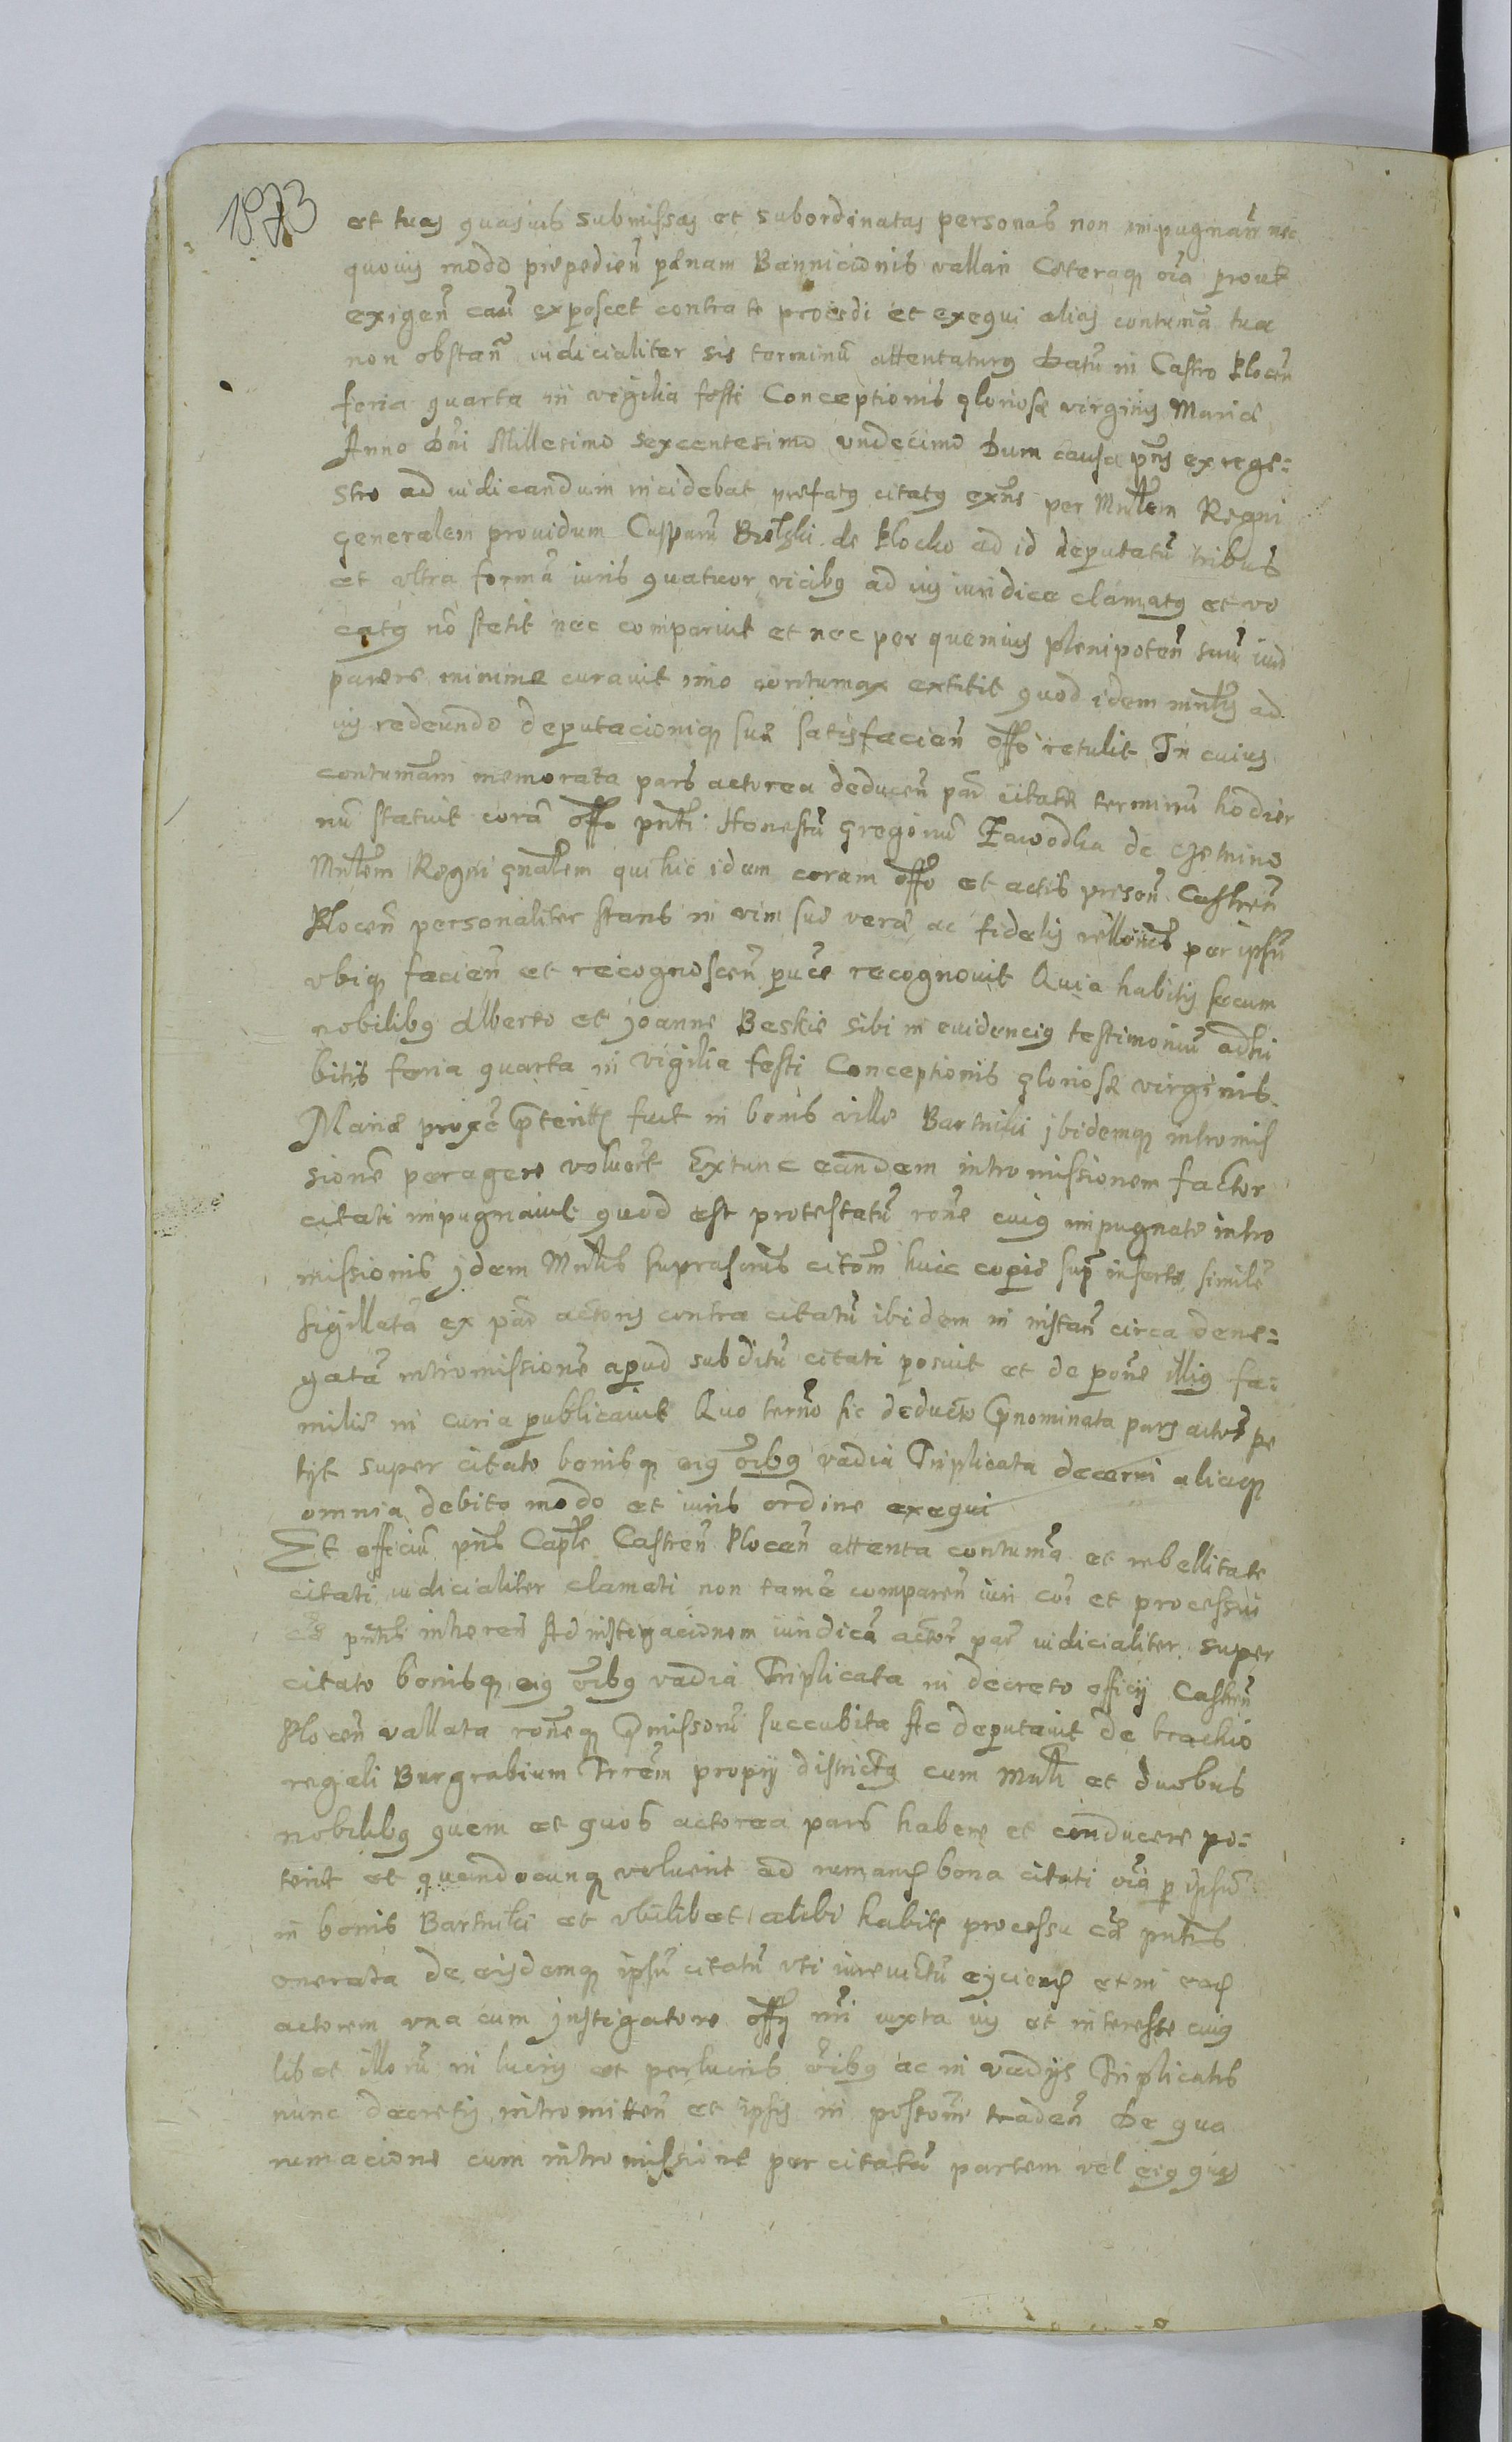 1873
et tuas quasuis submissas et subordinatas personas non impugnan̄ nec
quouis modo prepedien̄ pænam Bannicionis vallari Cæteraq; oīa prout
exigen̄ cau̅ exposcet contra te procedi et exequi alias contumā tua
non obstan̄ iudicialiter sis terminū attentaturus Datū in Castro Plocen̄
feria quarta in vigilia festi Conceptionis gloriosæ virginis Mariæ
Anno Dn̄i Millesimo Sexcentesimo vndecimo Dum causa pn̄s ex regi=
stro ad iudicandum incidebat prefatus citatus exn̄s per Mn̄lem Regni
generalem prouidum Casparū Bielski de Plocko ad id deputatū tribus
et vltra formā iuris quatuor vicibus ad ius iuridice clamatus et vo
catus nō stetit nec comparuit et nec per quemuis plenipoten̄ suū iud
parere minime curauit imo contumax extitit quod idem mn̄lis ad
ius redeundo deputacioniq; suæ satisfacien̄ offō retulit In cuius
contumām memorata pars actorea deducen̄ par̄ citatæ terminū hodier
nū statuit corā offo pn̄ti Honestū Gregoriū Zawodka de
Mn̄lem Regni gn̄alem qui hic idem coram offō et actis presen̄ Castren̄
Plocen̄ personaliter stans in vim suæ veræ ac fidelis rellōnis per ipsū
vbiq; facien̄ et recognoscen̄ recognouit Quia habitis secum
nobilibus Alberto et Joanne Beskie sibi in euidencius testimoniū adhi
bitis feria quarta in vigilia festi Conceptionis gloriosæ virginis
Mariæ proxē p̄terita fuit in bonis villæ Bartniki ibidemq; intromis
sionē peragere voluerit Extunc eandem intromissionem factor
citati impugnauit quod est protestatū rōne cuius impugnatæ intro
missionis idem Mn̄lis suprascriptus citōm huic copiæ sup̄ insertæ similē
sigillatā ex par̄ actoris contra citatū ibidem in instan̄ circa dene=
gatā intromissionē apud subditū citati posuit et de pone illius fa=
miliæ in curia publicauit Quo termō sic deducto p̄nominata pars actorea pe
tyt super citato bonisq; eius oībus vadia Triplicata decerni aliaq;
omnia debito modo et iuris ordine exequi
Et officiū pn̄s Capłe Castren̄ Plocen̄ attenta contumā et rebellitate
citati iudicialiter clamati non tamē comparen̄ iuri coī et processui
cæ pn̄tis inheren̄ Ad instigacionem iuridicā actoreæ par̄ iudicialiter super
citato bonisq; eius oībus vadia Triplicata in decreto officij Castren̄
Plocen̄ vallata rōneq; p̄missorū succubita Ac deputauit de brachio
regali Burgrabium Trrēm proprij districtus cum mn̄li et duobus
nobilibus quem et quos actorea pars habere et conducere po=
terit et quandocunq; voluerit ad bona citati oīa p ipsū
in bonis Bartniki et vbilibet alibi habita processu cæ pn̄tis
onerata de eisdemq; ipsū citatū vti iurevictū eijciend et in ead
actorem vna cum instigatore offij nr̄i iuxta ius et interesse cuius
libet illorū in lucris et perlucris oībus ac in vadijs Triplicatis
nunc decretis intromitten̄ et ipsis in postōne traden̄ De qua
rumacione cum intromissione per citatā partem vel eius